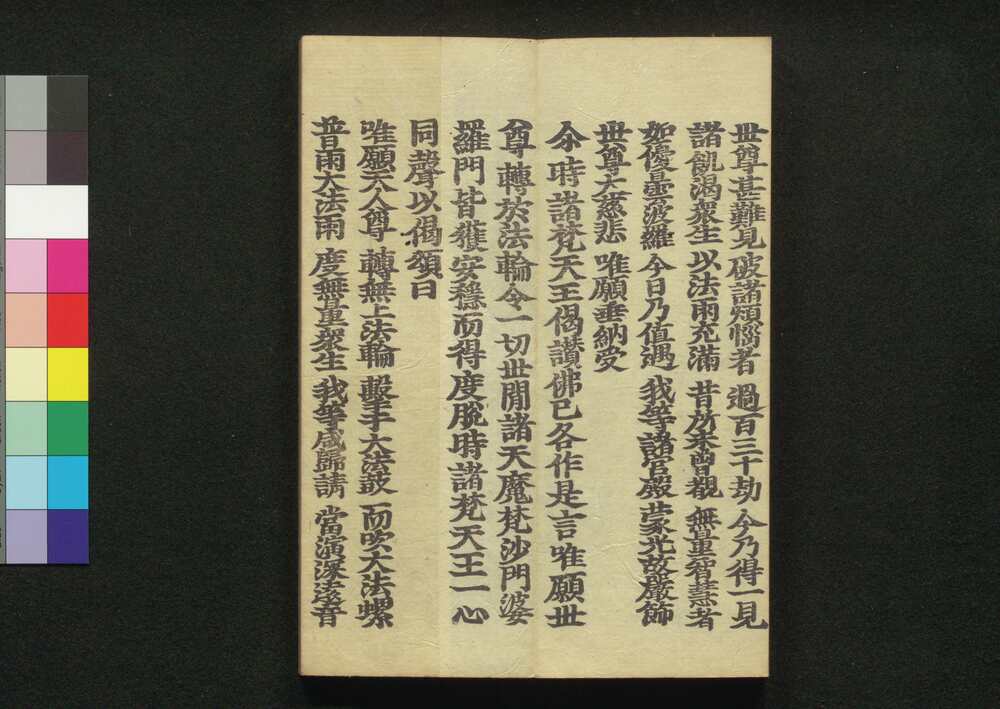 世尊甚難見 破諸煩惱者 過百三十劫 今乃得一見
諸飢渴衆生 以法雨充滿 昔所未曾覩 無量智慧者
如優曇波羅 今日乃值遇 我等諸宮殿 蒙光故嚴飾
世尊大慈悲 唯願垂納受
尒時諸梵天王偈讃佛已各作是言唯願世
尊轉於法輪令一切世間諸天魔梵沙門婆
羅門皆獲安穩而得度脫時諸梵天王一心
同聲以偈頌曰
唯願天人尊 轉無上法輪 擊于大法鼓 而吹大法螺
普雨大法雨 度無量衆生 我等咸歸請 當演深遠音